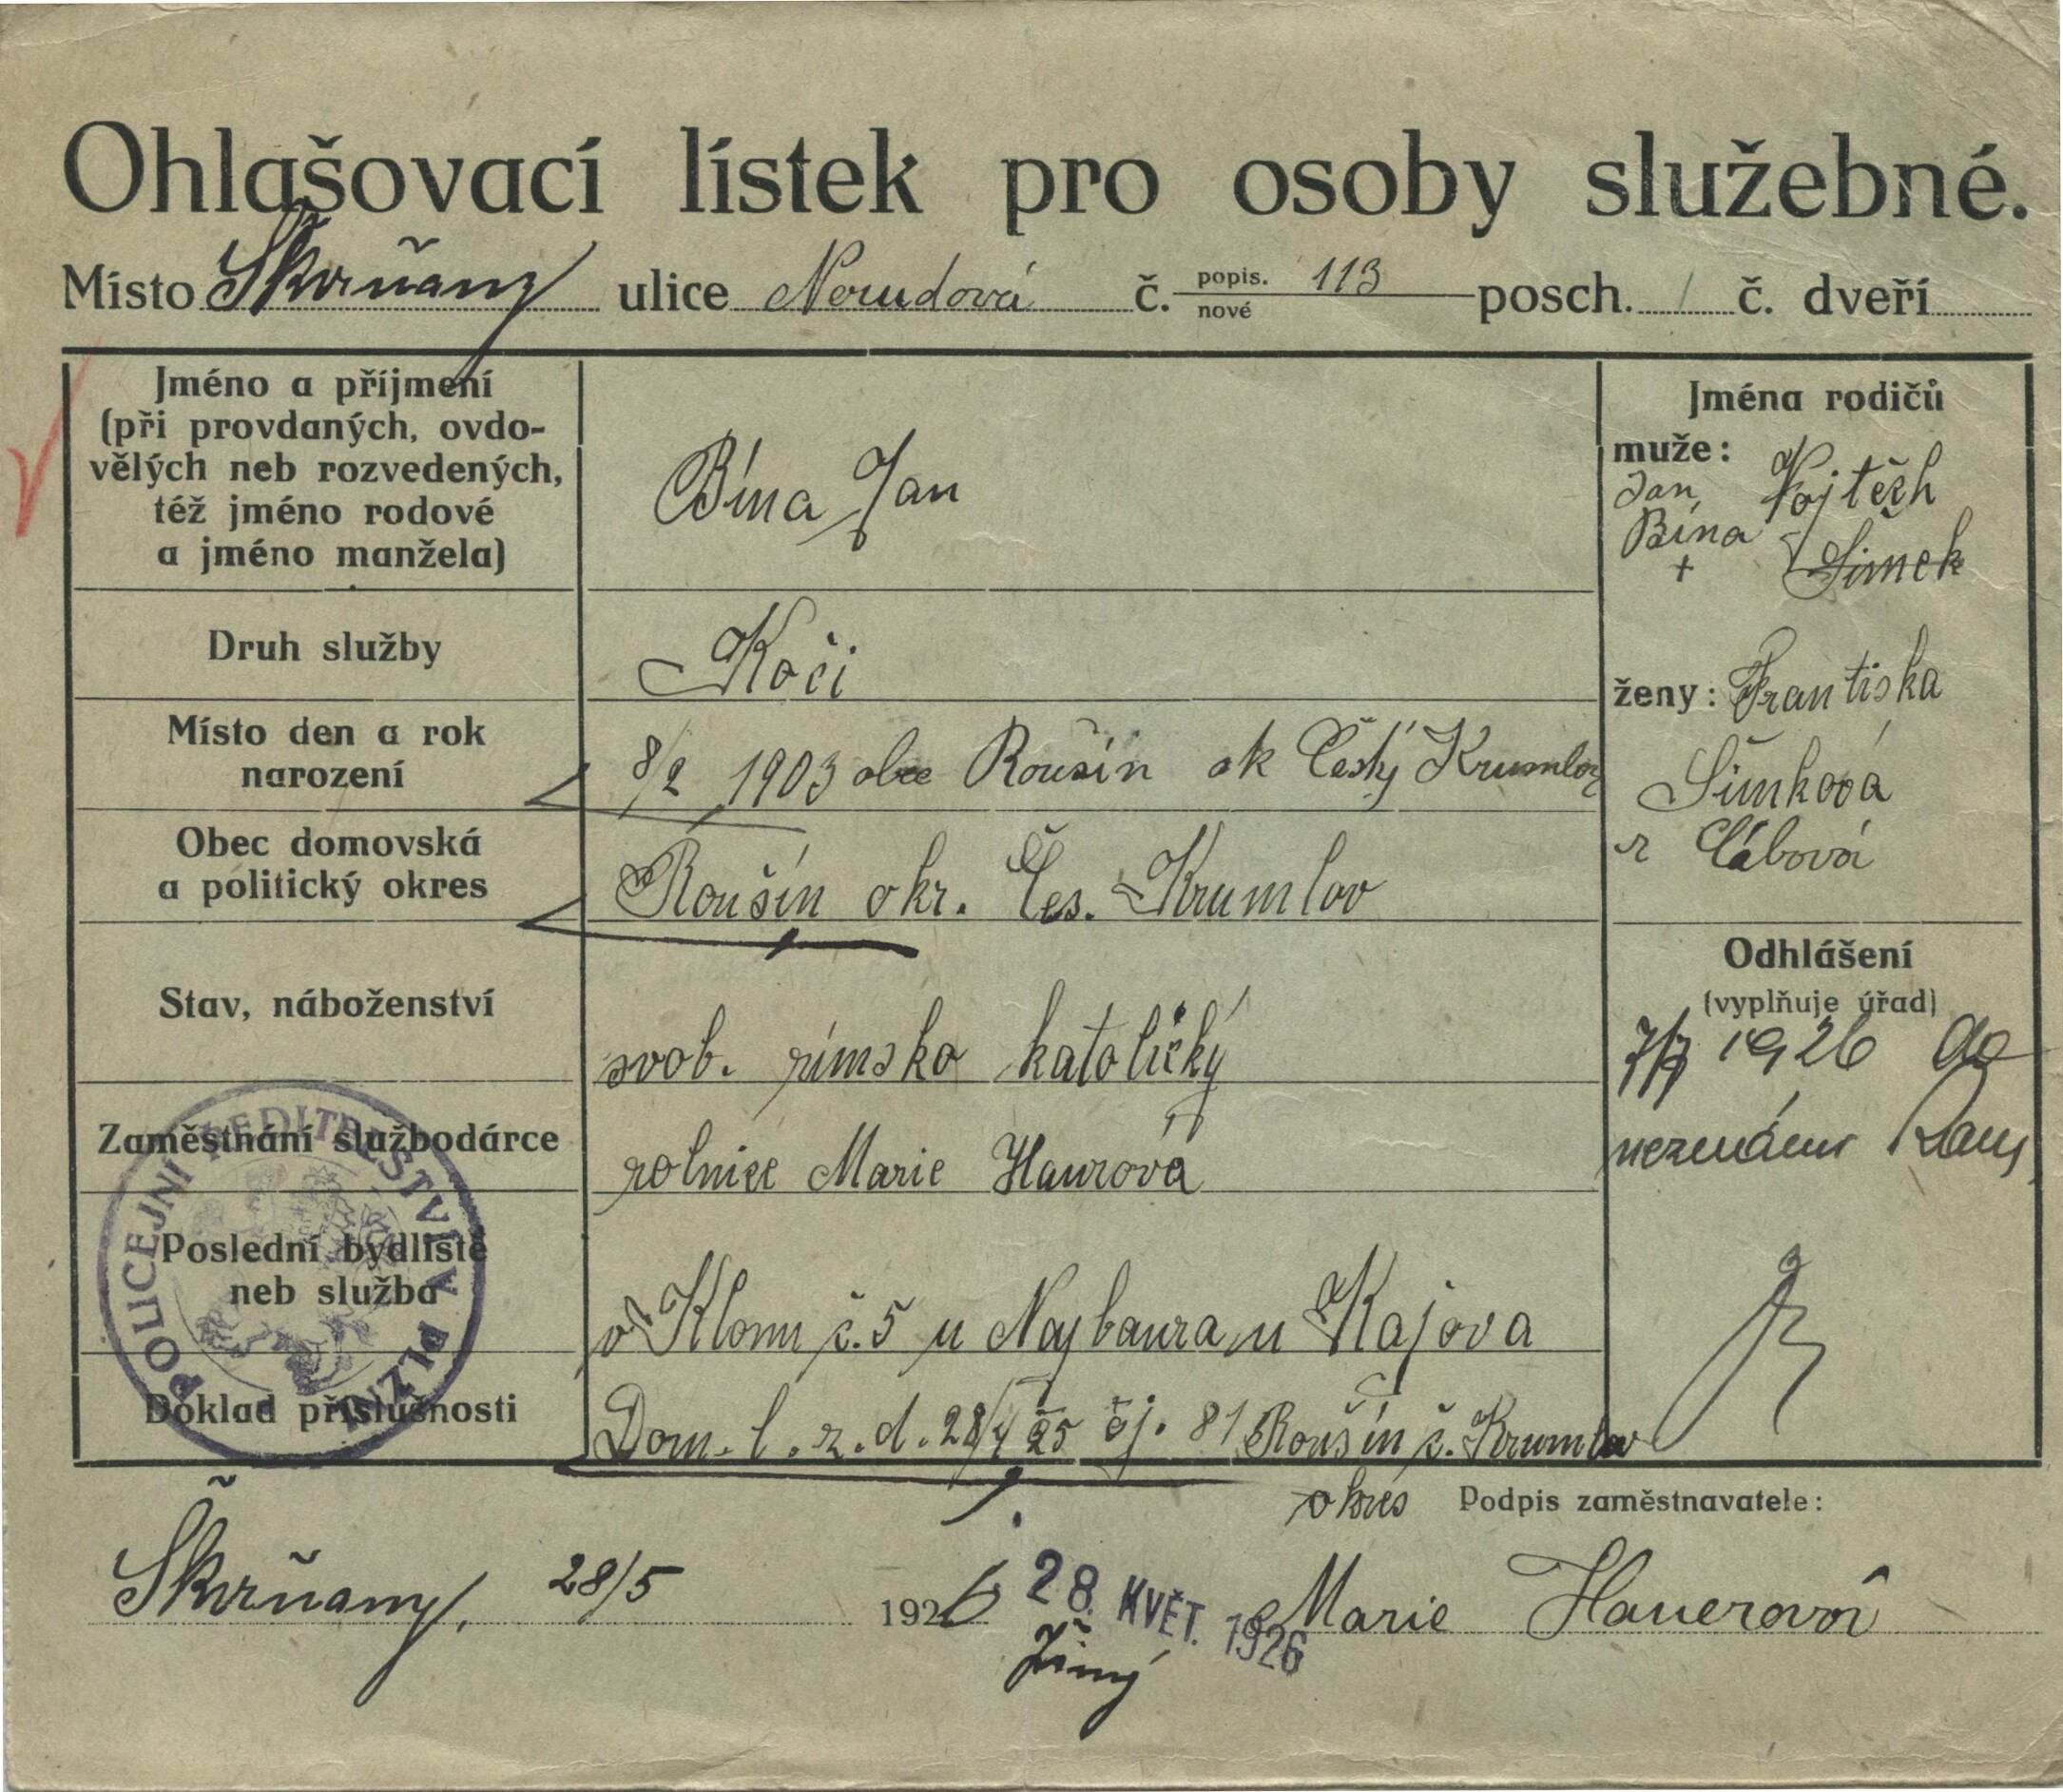 Ohlašovací lístek pro osoby služebné.
Místo Škvrňany ulice Nerudová č. popis. 113 posch. 1 č. dveří
nové
Jméno a příjmení
(při provdaných, ovdo-
vělých neb rozvedených,
též jméno rodové
a jméno manžela)
Bína Jan
Jména rodičů
muže:
Jan Vojtěch
Bína Šimek
+
Druh služby
Koči
ženy: Frantiska
Šimková
r Cábová
Místo den a rok
narození
8/2 1903 obec Roušín ok Český Krumlov
Obec domovská
a politický okres
Roušín okr. Čes. Krumlov
Stav, náboženství
svob. římsko katolický
Odhlášení
(vyplňuje úřad)
7/7 1926 do
neznáma
Zaměstnání službodárce
rolnice Marie Haurová
Poslední bydliště
neb služba
v Klomu č. 5 u Najbaura u Kajova
Doklad příslušnosti
Dom. l. z. d. 28/4 25 čj. 81 Roušín č. Krumlov
okres
POLICEJNÍ ŘEDITELSTVÍ V PLZNI
Podpis zaměstnavatele:
Škvrňany, 28/5 1926
28. KVĚT. 1926
Marie Hauerová